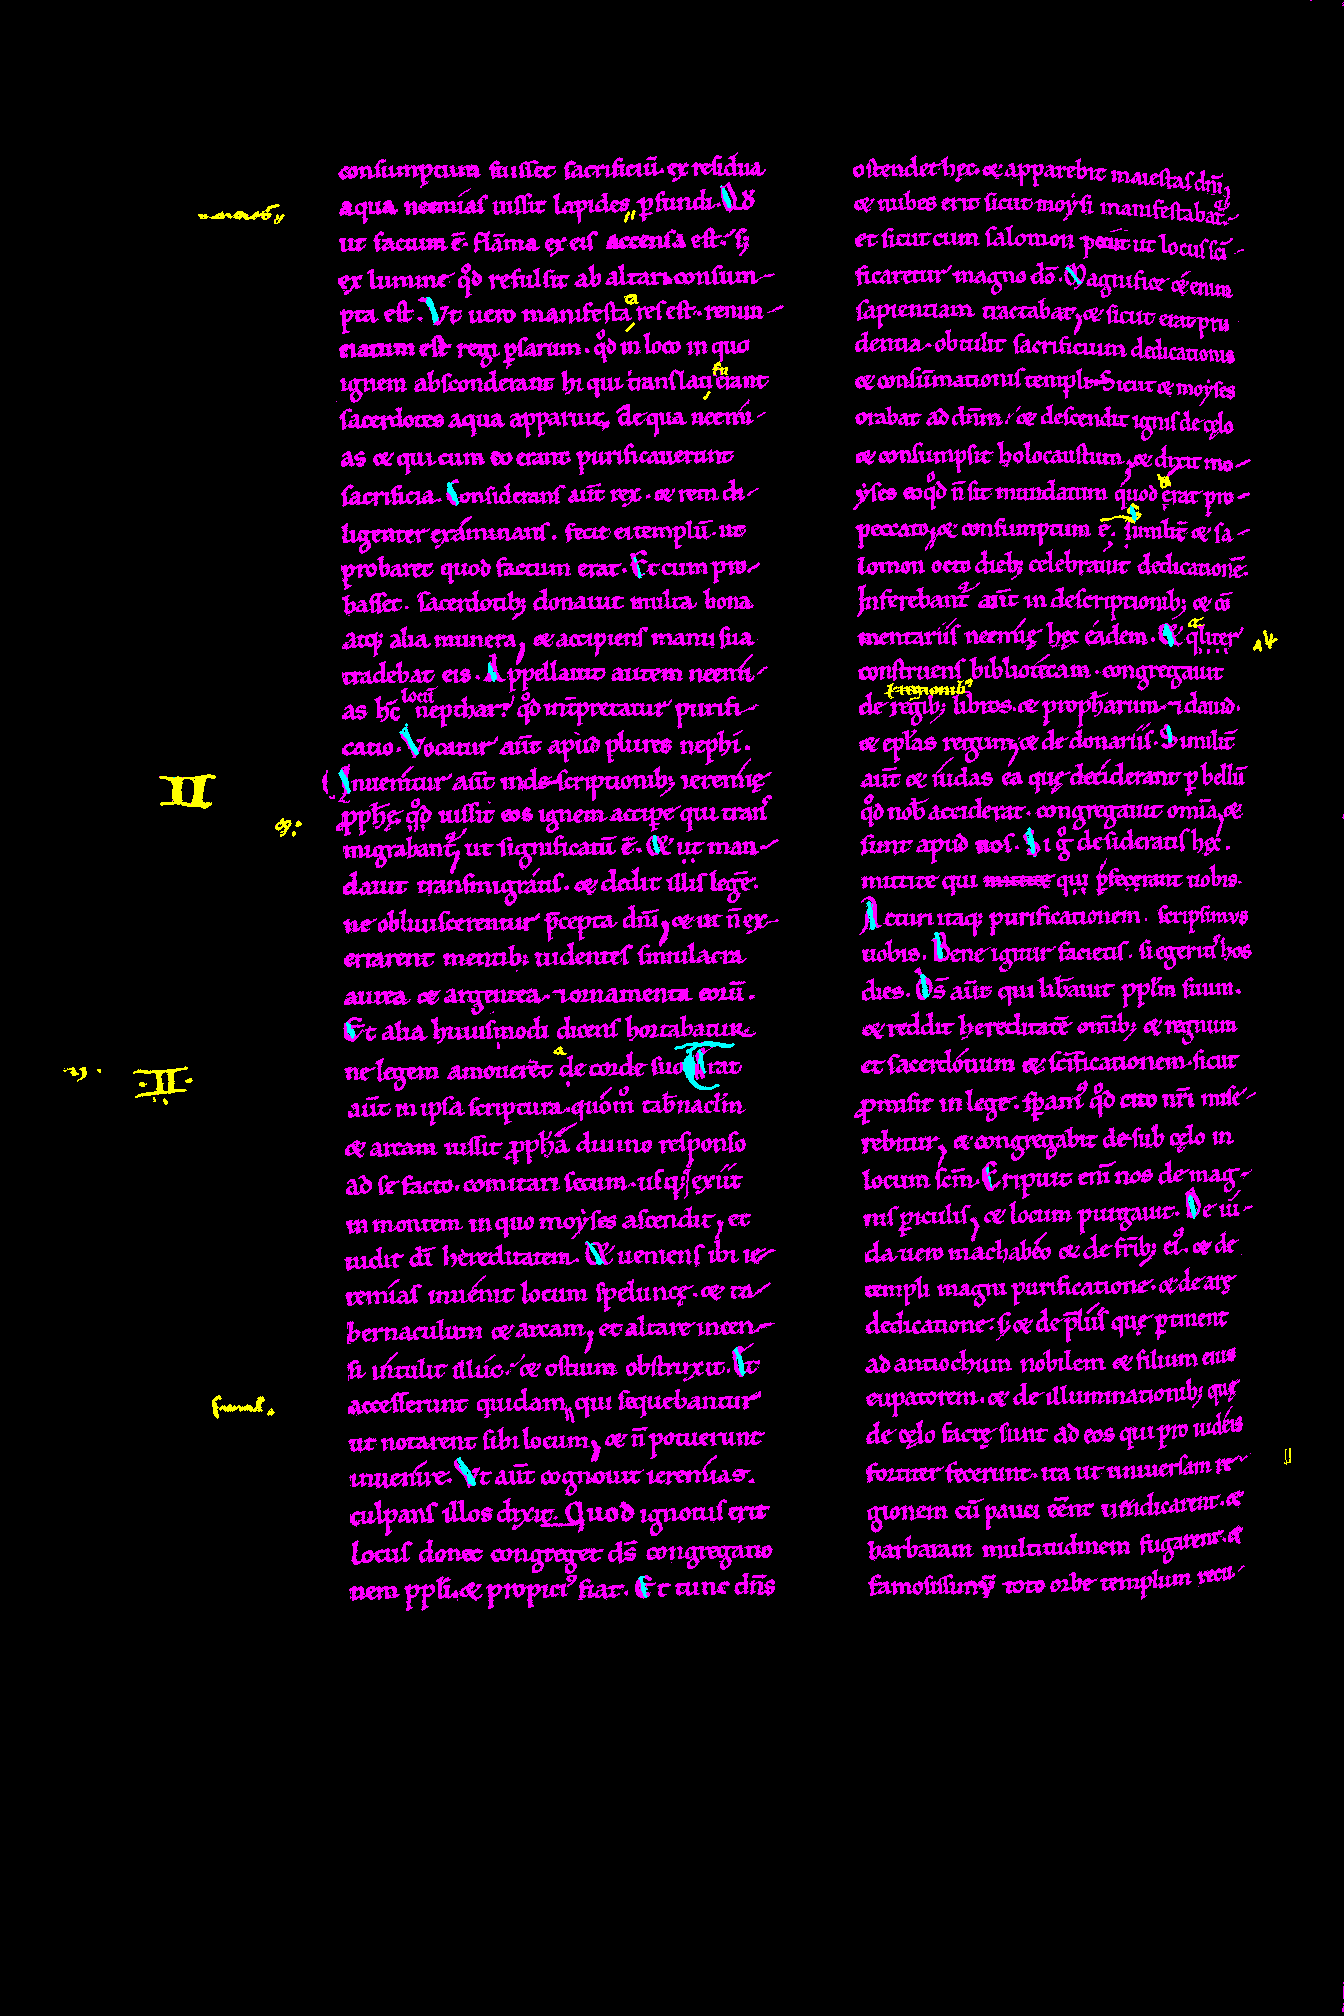 consumptum fuisset sacrificiū. ex residua
aqua neemias iussit lapides p̱fundi. Qđ
ut factum ē. flāma ex eis accensa est. sꝫ
ex lumine qđ refulsit ab altari consum-
pta est. Vt uero manifesta res est. renun-
ciatum est regi p̱sarum. qđ in loco in quo
ignem absconderant hi qui translati erant
sacerdotes aqua apparuit, de qua neemi-
as & qui cum eo erant purificauerunt
sacrificia. Considerans aūt rex. & rem di-
ligenter examinans. fecit ei templū. ut
probaret quod factum erat. Et cum pro-
basset. sacerdotibꝫ donauit multa bona
atqꝫ alia munera, & accipiens manu sua
tradebat eis. Appellauit autem neemi-
as hc̄ locū nepthar. qđ int̄pretatur purifi-
catio. Vocatur aūt apud plures nephi.
II
Inuenitur aūt in descriptionibꝫ ieremię
ꝓph̄ę qđ iussit eos ignem accip̱e qui trans
migrabant, ut significatū ē. & ut man-
dauit transmigratis. & dedit illis legē.
ne obliuiscerentur p̄cepta dn̄i, & ut n̄ ex-
errarent mentibꝫ uidentes simulacra
aurea & argentea. ⁊ ornamenta eorū.
Et alia huiusmodi dicens hortabatur
ne legem amouerēt a corde suo. Erat
II
aūt in ipsa scriptura. quom̊ tab̄naclm̄
& arcam iussit ꝓph̄a diuino responso
ad se facto. comitari secum. usqꝫ exiit
in montem in quo moẏses ascendit, et
uidit dī hereditatem. & ueniens ibi ie-
remias inuenit locum speluncę. & ta-
bernaculum & arcam, et altare incen-
si intulit illuc. & ostium obstruxit. Et
accesserunt quidam, qui sequebantur
ut notarent sibi locum, & n̄ potuerunt
inuenire. Vt aūt cognouit ieremias.
culpans illos dixit. Quod ignotus erit
locus donec congreget ds̄ congregatio
nem ppl̄i. & propiciꝰ fiat. Et tunc dn̄s
ostendet hęc. & apparebit maiestas dn̄i,
& nubes erit sicut moẏsi manifestabat.
et sicut cum salomon petiit ut locus sc̄i-
ficaretur magno dō. Magnifice &enim
sapientiam tractabat, & sicut erat pru
dentia. obtulit sacrificium dedicationis
& consūmationis templi. Sicut & moẏses
orabat ad dn̄m. & descendit ignis de cęlo
& consumpsit holocaustum, & dixit mo-
ẏses eo qđ n̄ sit mundatum quod erat pro
peccato, & consumptum ē. similit̄ & sa-
lomon octo diebꝫ celebrauit dedicationē.
Inferebantꝰ aūt in descriptionibꝫ & cō
mentariis neemię hęc eadem. & qualiter
construens bibliothecam. congregauit
de regibꝫ libros. & propharum. ⁊ dauid.
& epl̄as regum, & de donariis. Similit̄
aūt & iudas ea quę deciderant p̱ bellū
qđ nob̄ acciderat. congregauit omīa, &
sunt apud nos. Si g̊ desideratis hęc.
mittite qui p̱ferant uobis.
Acturi itaqꝫ purificationem. scripsimus
uobis. Bene igitur facietis. si egeritis hos
dies. Ds̄ aūt qui lib̄auit ppl̄m suum.
& reddit hereditatē omībꝫ & regnum
et sacerdotium & sc̄ificationem. sicut
ꝓmisit in lege. sp̱amꝰ qđ cito nr̄i mise-
rebitur, & congregabit de sub cęlo in
locum scm̄. Eripuit enī nos de mag-
nis p̱iculis, & locum purgauit. De iu-
da uero machabeo & de fr̄ibꝫ eiꝰ. & de
templi magni purificatione. & de arę
dedicatione. sꝫ & de p̄liis quę p̱tinent
ad antiochum nobilem & filium eius
eupatorem. & de illuminationibꝫ quę
de cęlo factę sunt ad eos qui pro iudeis
fortiter fecerunt. ita ut uniuersam re-
gionem cū pauci eēnt uindicarent. &
barbaram multitudinem fugarent. &
famosissimū toto orbe templum recu-